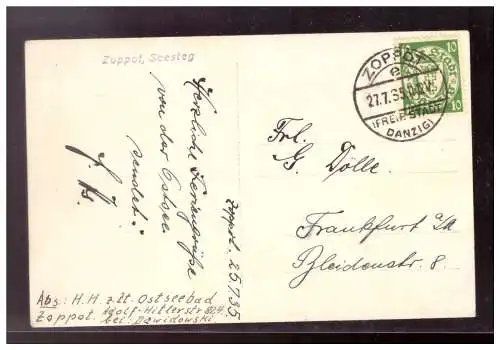 Zoppot, Seesteg
Herzliche Feriengrüße
von der Ostsee
sendet:
Zoppot. 25/7 35
Abs: H.H. z.Zt. Ostseebad
Zoppot. Adolf-Hitlerstr 804.
bei: Dawidowski
ZOPPOT
e
27.7.35.
(FREIE STADT
DANZIG)
10
10
Frl.
G. Dölle.
Frankfurt a/M
Bleidenstr. 8.